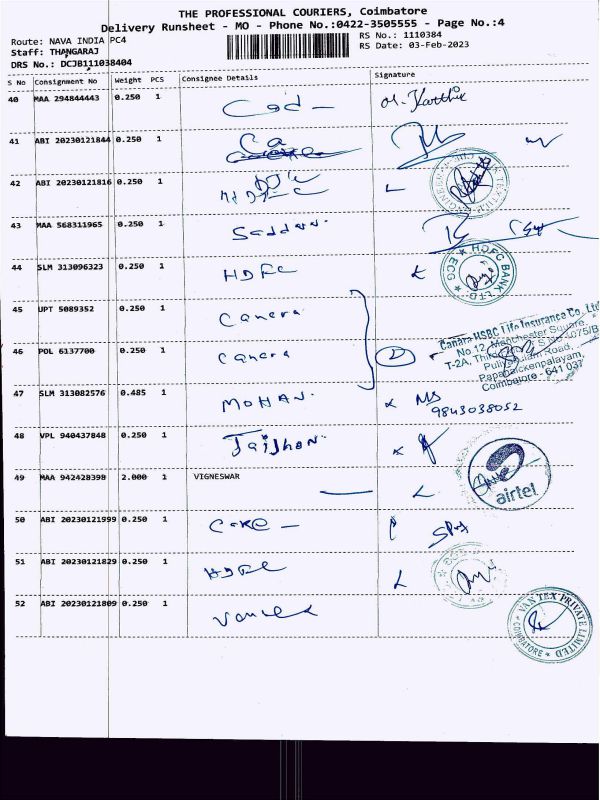 THE PROFESSIONAL COURIERS, Coimbatore
Delivery Runsheet - MO - Phone No.:0422-3505555 - Page No.:4
Route: NAVA INDIA PC4
RS No.: 1110384
Staff: THANGARAJ
RS Date: 03-Feb-2023
DRS No.: DCJB111038404
S No Consignment No Weight PCS Consignee Details Signature
40 MAA 294844443 0.250 1 M. Karthik
41 ABI 20230121844 0.250 1 Ca
42 ABI 20230121816 0.250 1
43 MAA 568311965 0.250 1 Saddam
44 SLM 313096323 0.250 1 HDFC
HDFC BANK LTD. ECG
45 UPT 5089352 0.250 1 Canera
46 POL 6137700 0.250 1 Canera 2
Canara HSBC Life Insurance Co. Ltd
No 12, Manchester Square,
Puliyakulam Road,
Papanaickenpalayam,
Coimbatore - 641 037
47 SLM 313082576 0.485 1 MOHAN. MS
9843038052
48 VPL 940437848 0.250 1
49 MAA 942428398 2.000 1 VIGNESWAR
airtel
50 ABI 20230121999 0.250 1
51 ABI 20230121829 0.250 1 HDFC
52 ABI 20230121809 0.250 1
VAN TEX PRIVATE LIMITED
COIMBATORE